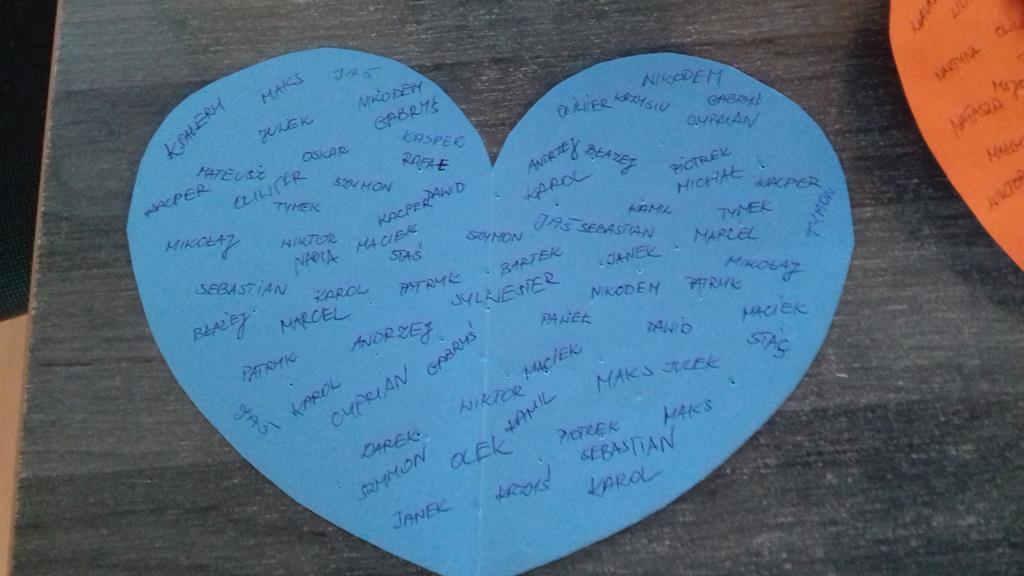 KSAWERY MAKS JAŚ
NIKODEM
JULEK GABRYŚ
KASPER
OSKAR RAFAŁ
MATEUSZ
KACPER OLIWIER SZYMON DAWID
TYMEK KACPER
MIKOŁAJ WIKTOR MACIEK
NADIA STAŚ
SEBASTIAN KAROL PATRYK
BŁAŻEJ MARCEL SYLWESTER
ANDRZEJ
PATRYK GABRYŚ
JAŚ KAROL CYPRIAN
DAREK
SZYMON OLEK
JANEK
NIKODEM
OLIWIER KRZYSIU GABRYŚ
CYPRIAN
ANDRZEJ BŁAŻEJ PIOTREK
KAROL MICHAŁ KACPER
KAMIL TYMEK TYMON
SZYMON JAŚ SEBASTIAN MARCEL
BARTEK JANEK MIKOŁAJ
NIKODEM PATRYK
PAWEŁ DAWID MACIEK
STAŚ
MACIEK
WIKTOR MAKS JULEK
KAMIL
PIOTREK MAKS
SEBASTIAN
KRZYŚ KAROL
MARTYNA
NATASZA